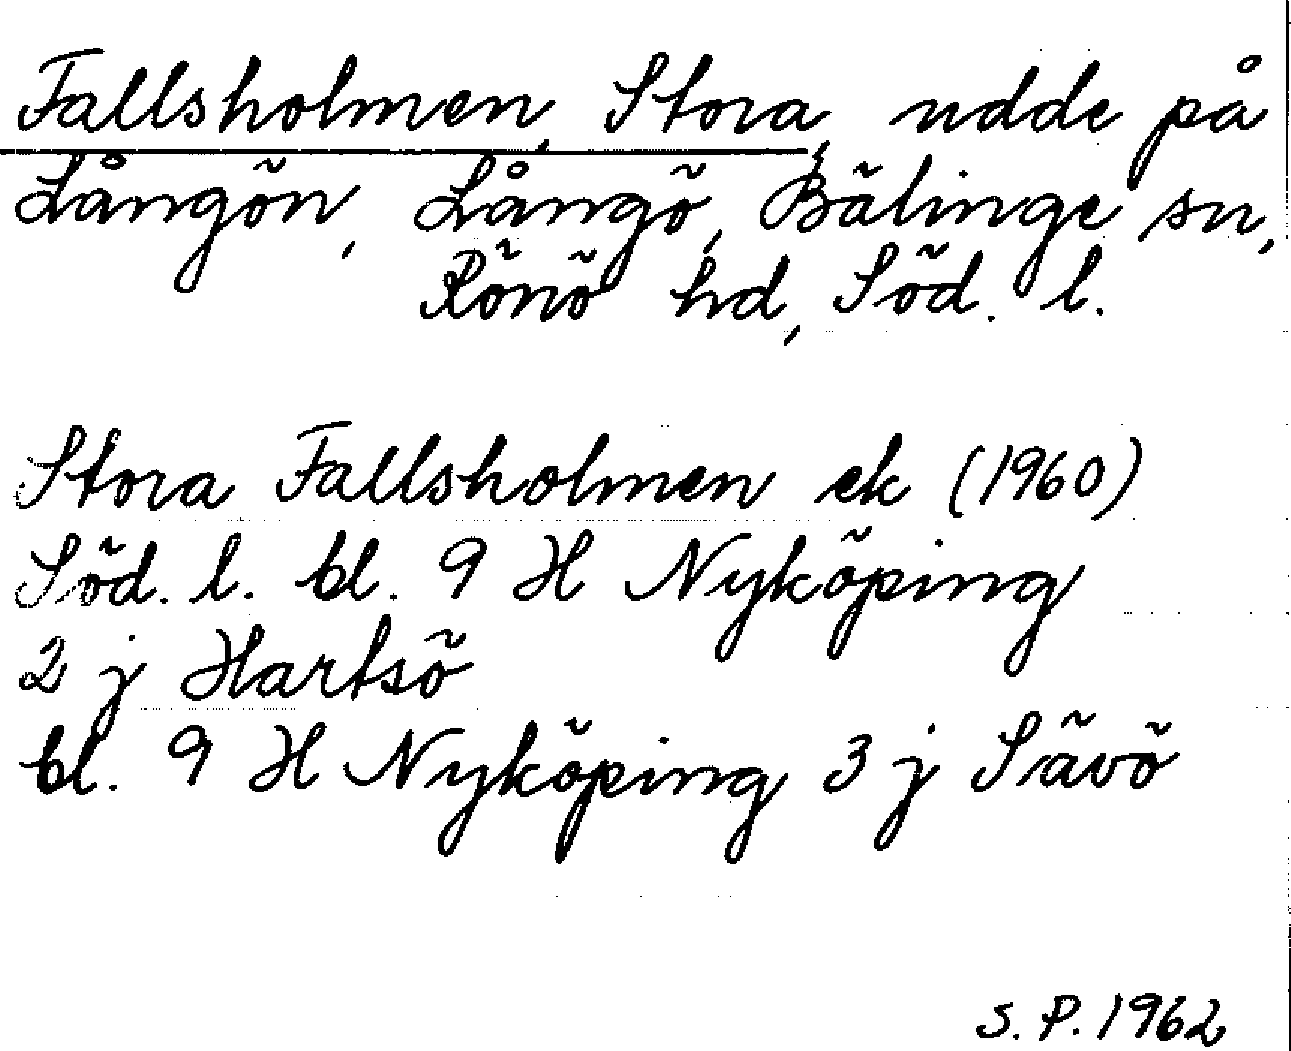 Fallsholmen, Stora, udde på
Långön, Långö, Bälinge sn,
Rönö hd, Söd. l.
Stora Fallsholmen ek (1960)
Söd. l. bl. 9 H Nyköping
2 j Hartsö
bl. 9 H Nyköping 3 j Sävö
S. P. 1962